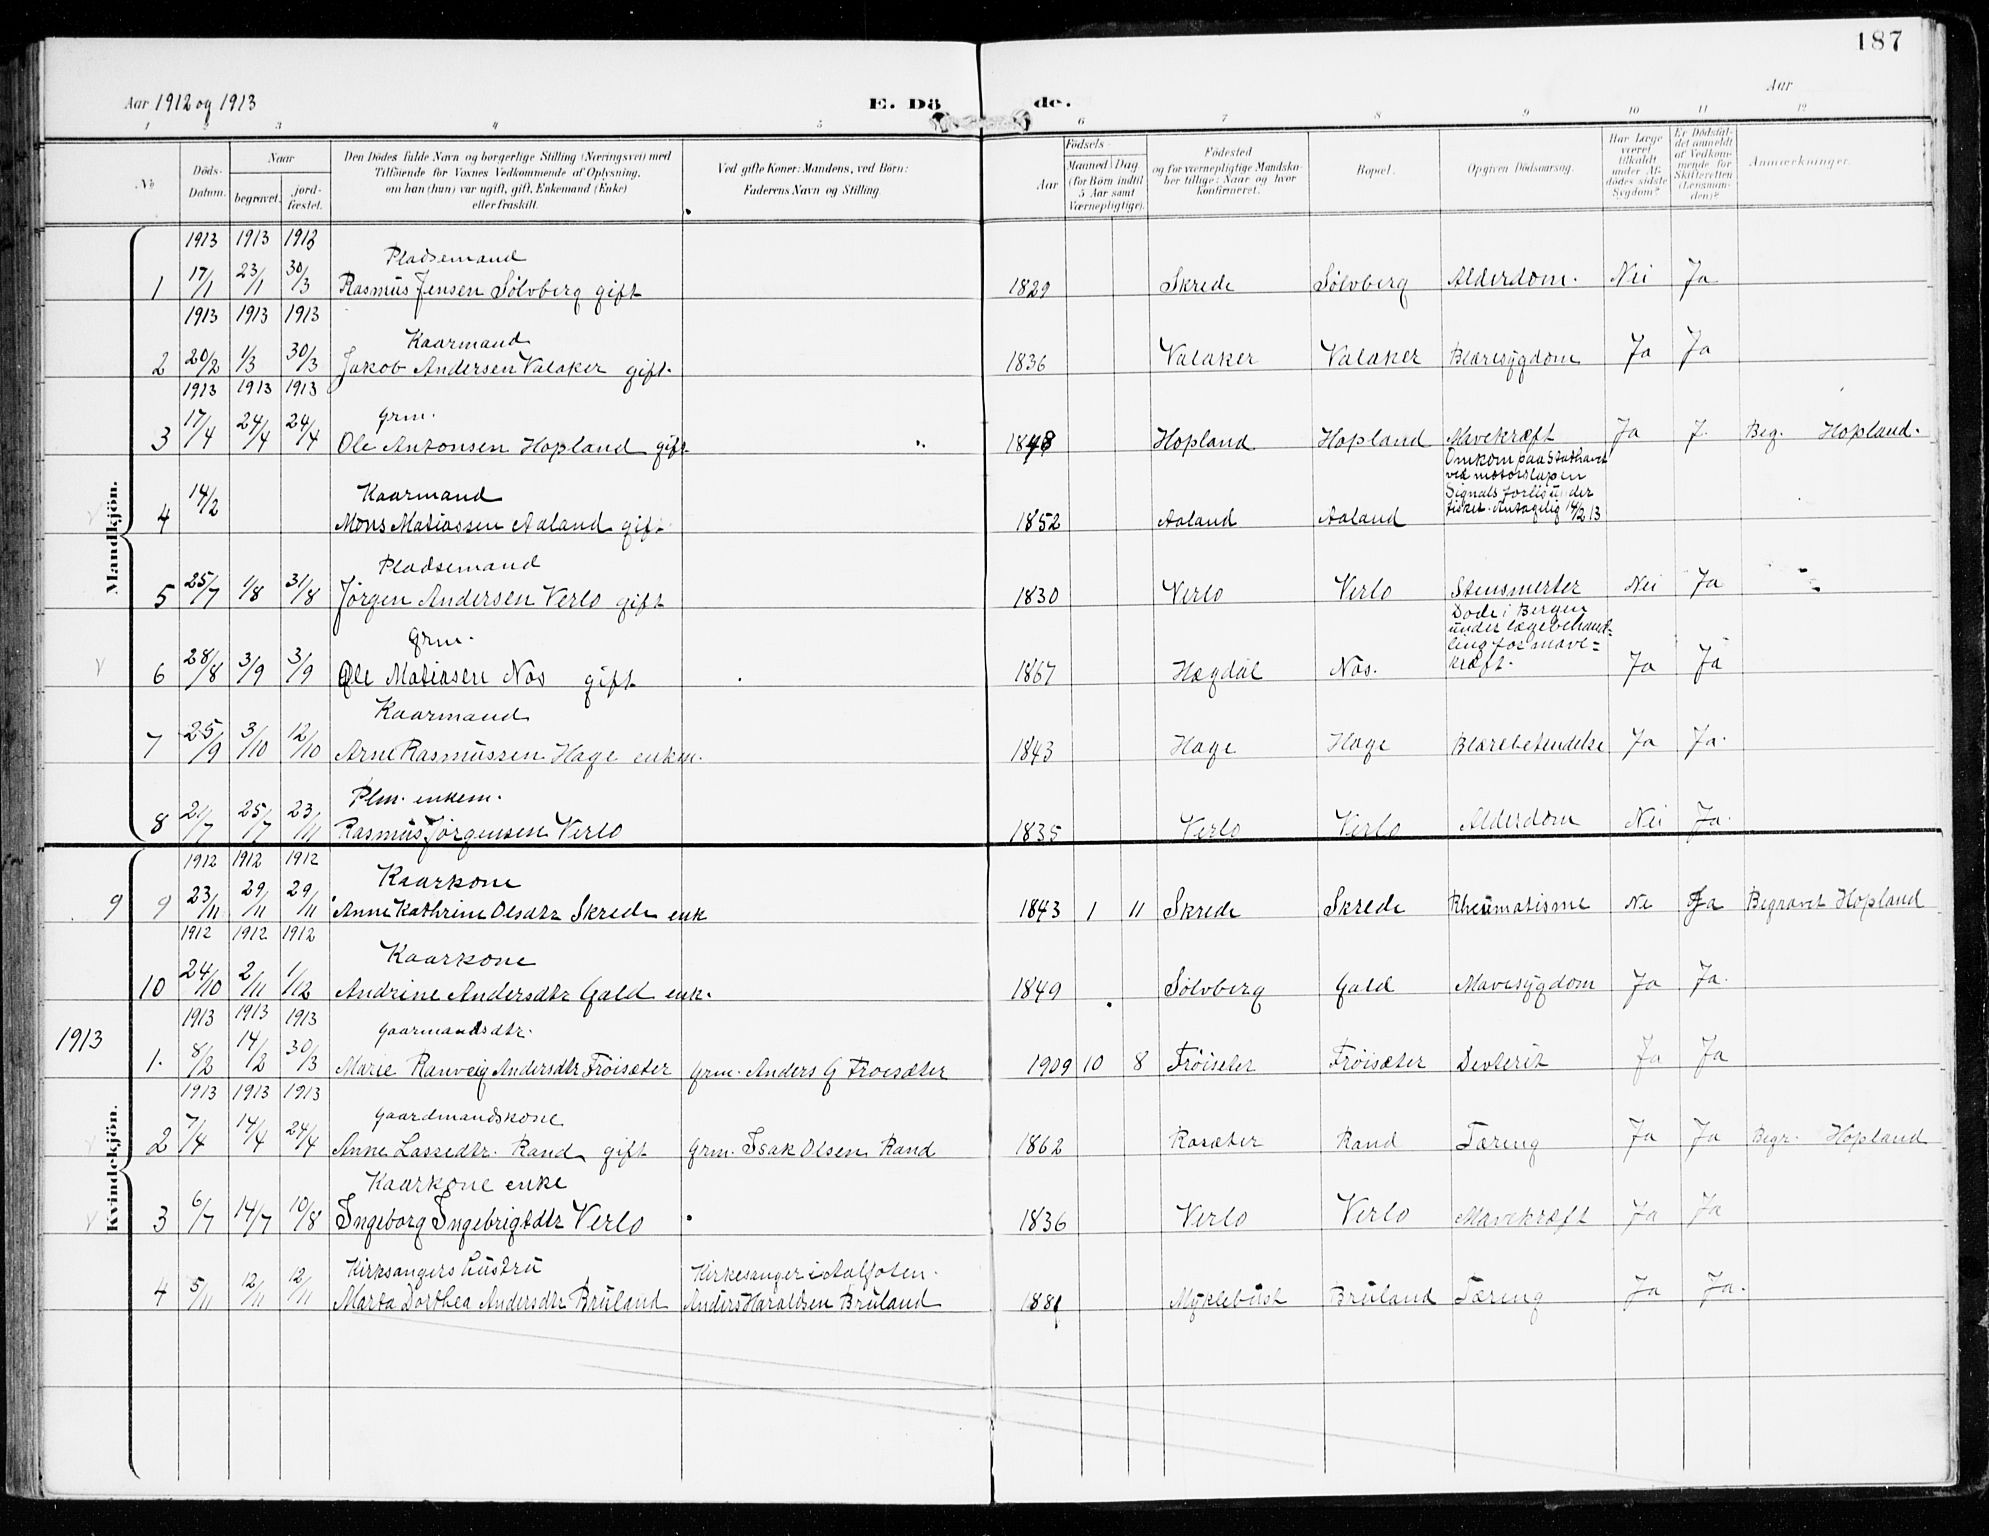 187
Aar 1912 og 1913
E. Dö de.
Aar
1 2 3 4 5 6 7 8 9 10 11 12
No
Döds-Datum.
Naar
begravet.
jord-fæstet.
Den Dödes fulde Navn og borgerlige Stilling (Næringsvei) med
Tilföiende for Voxnes Vedkommende af Oplysning,
om han (hun) var ugift, gift, Enkemand (Enke)
eller fraskilt.
Ved gifte Koner: Mandens, ved Börn:
Faderens Navn og Stilling
Födsels-
Aar
Maaned Dag
(for Börn indtil
5 Aar samt
Værnepligtige).
Födested
og for værnepligtige Mandska-
ber tillige: Naar og hvor
konfirmeret.
Bopæl.
Opgiven Dödsaarsag.
Har Læge
været
tilkaldt
under Af-
dödes sidste
Sygdom?
Er Dödsfal-
det anmeldt
af Vedkom-
mende for
Skifteretten
(Lensman-
den)?
Anmærkninger.
Mandkjön.
1913 1913 1913
Pladsemand
1 17/1 23/1 30/3 Rasmus Jensen Sölvberg gift 1829 Skrede Sölvberg Alderdom. Nei Ja
1913 1913 1913
Kaarmand
2 20/2 1/3 30/3 Jakob Andersen Valaker gift. 1836 Valaker Valaker Blæresygdom Ja Ja
1913 1913 1913
Grm.
3 17/4 24/4 24/4 Ole Antonsen Hopland gift 1848 Hopland Hopland Mavekræft Ja J. Beg. Hopland.
Omkom paa Stathavet
ved motorslupen
Signals forlis under
fisket. Antagelig 14/2 13
Kaarmand
4 14/2 Mons Matiassen Aaland gift 1852 Aaland Aaland
Pladsemand
5 25/7 1/8 31/8 Jörgen Andersen Verlo gift 1830 Verlo Verlo Stensmerter Nei Ja
Döde i Bergen
under lægebehand-
ling for mave-
kræft.
Grm.
6 28/8 3/9 3/9 Ole Matiasen Nös gift 1867 Hægdal Nös. Ja Ja
Kaarmand
7 25/9 3/10 12/10 Arne Rasmussen Hage enkm. 1843 Hage Hage Blærebetendelse Ja Ja.
Plm. enkem.
8 21/7 25/7 23/11 Rasmus Jörgensen Verlo 1835 Verlo Verlo Alderdom Nei Ja.
Kvindekjön.
1912 1912 1912
Kaarkone
9 9 23/11 29/11 29/11 Anne Kathrine Olsdtr Skrede enk 1843 1 11 Skrede Skrede Rheumatisme Ne Ja Begravet Hopland
1912 1912 1912
Kaarkone
10 24/10 2/11 1/12 Andrine Andersdtr Gald enk. 1849 Sölvberg Gald Mavesygdom Ja Ja.
1913 1913 1913
1913
Gaarmandsdtr.
1. 8/2 14/2 30/3 Marie Ranveig Andersdtr Fröisæter Grm. Anders G Fröisæter 1909 10 8 Fröiseter Fröisæter Devterit Ja Ja
1913 1913 1913
Gaardmandskone
2 7/4 14/4 24/4 Anne Lassedtr. Rand gift Grm. Isak Olsen Rand 1862 Raræter Rand Tæring Ja Ja Begr. Hopland
Kaarkone enke
3 6/7 14/7 10/8 Ingeborg Ingebrigtdtr Verlo 1836 Verlo Verlo Mavekræft Ja Ja
Kirksangers hustru Kirkesanger i Aalfoten.
4 5/11 12/11 12/11 Marta Dorthea Andersdtr Bruland Anders Haraldsen Bruland 1881 Myklebust Bruland Tæring Ja Ja.